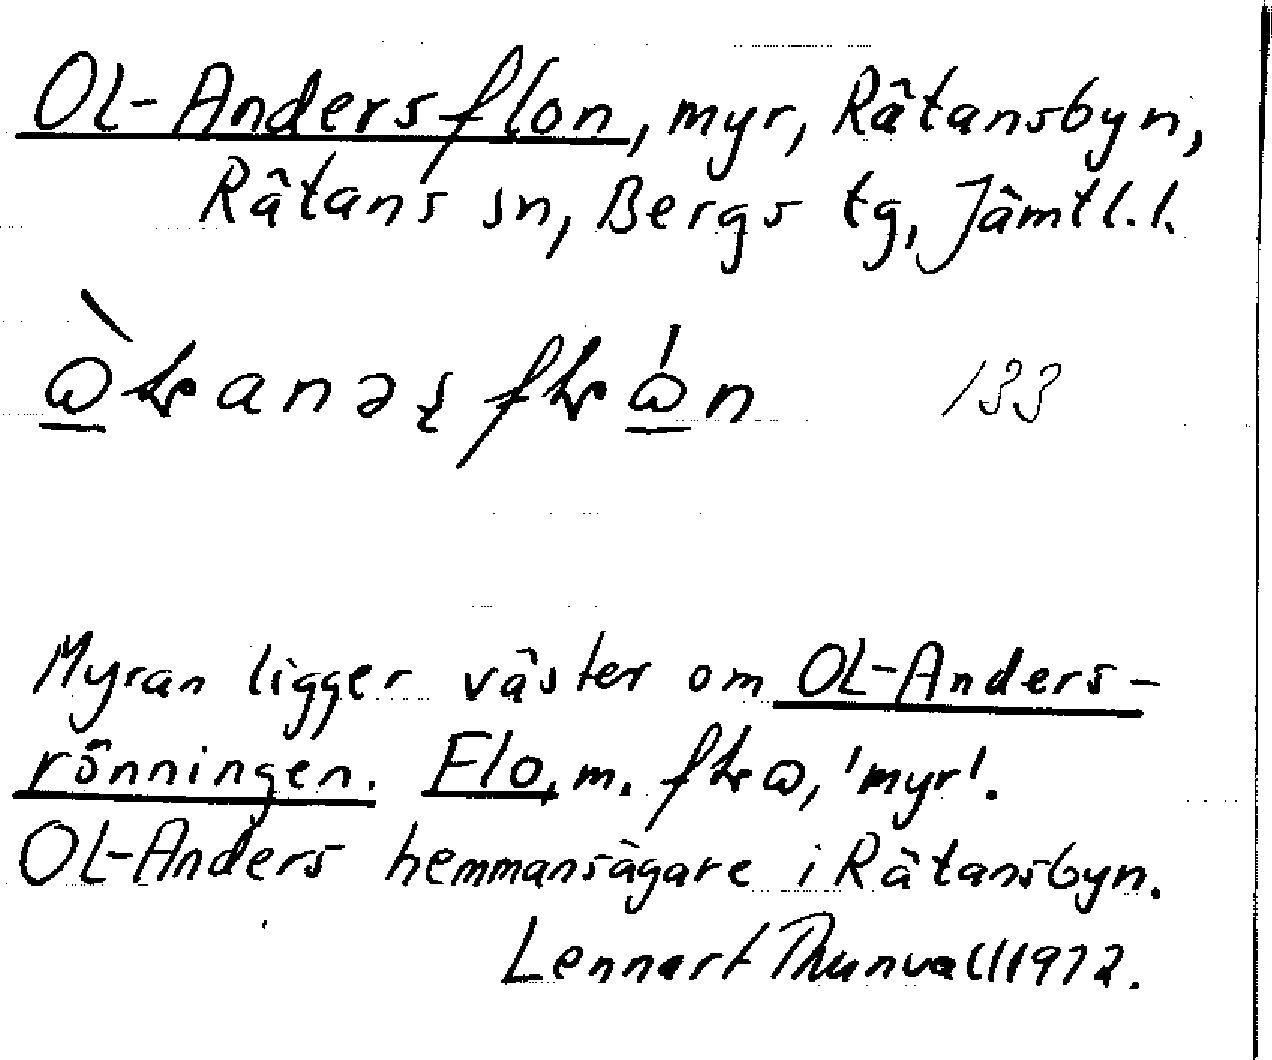 OL-Andersflon, myr, Rätansbyn,
Rätans sn, Bergs tg, Jämtl.l.
133
Myran ligger väster om OL-Anders-
rönningen. Flo, m. 'myr'.
OL-Anders hemmansägare i Rätansbyn.
Lennart Thunvall 1972.